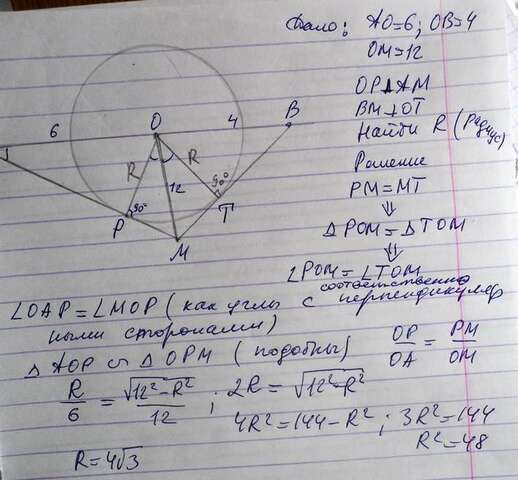 Дано: AO=6; OB=4
OM=12
OP⊥AM
BM⊥OT
Найти R (радиус)
Решение
PM=MT
⇓
△POM=△TOM
⇓
∠POM=∠TOM
6
O
4
B
R
R
12
90°
90°
P
T
M
∠OAP=∠MOP (как углы с соответственно перпендикуляр
ными сторонами)
△AOP ∽ △OPM (подобны) OP/OA = PM/OM
R/6 = √(12²-R²)/12 ; 2R=√(12²-R²)
4R²=144-R² ; 3R²=144
R²=48
R=4√3